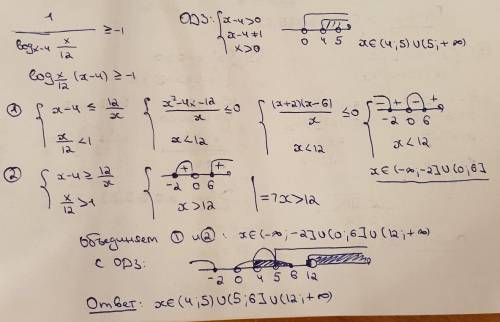 1/(log_{x-4} x/12) ≥ -1    ОДЗ: { x-4>0   x-4≠1   x>0    0 4 5    x∈(4;5)∪(5;+∞)
log_{x/12}(x-4) ≥ -1
① { x-4 ≤ 12/x   x/12 < 1   { (x²-4x-12)/x ≤ 0   x<12   { (x+2)(x-6)/x ≤ 0   x<12   { - + - +   -2 0 6   x<12
x∈(-∞;-2]∪(0;6]
② { x-4 ≥ 12/x   x/12 > 1   { +   -2 0 6   x>12   | => x>12
объединяет ① и ②: x∈(-∞;-2]∪(0;6]∪(12;+∞)
С ОДЗ:   -2 0 4 5 6 12
Ответ: x∈(4;5)∪(5;6]∪(12;+∞)